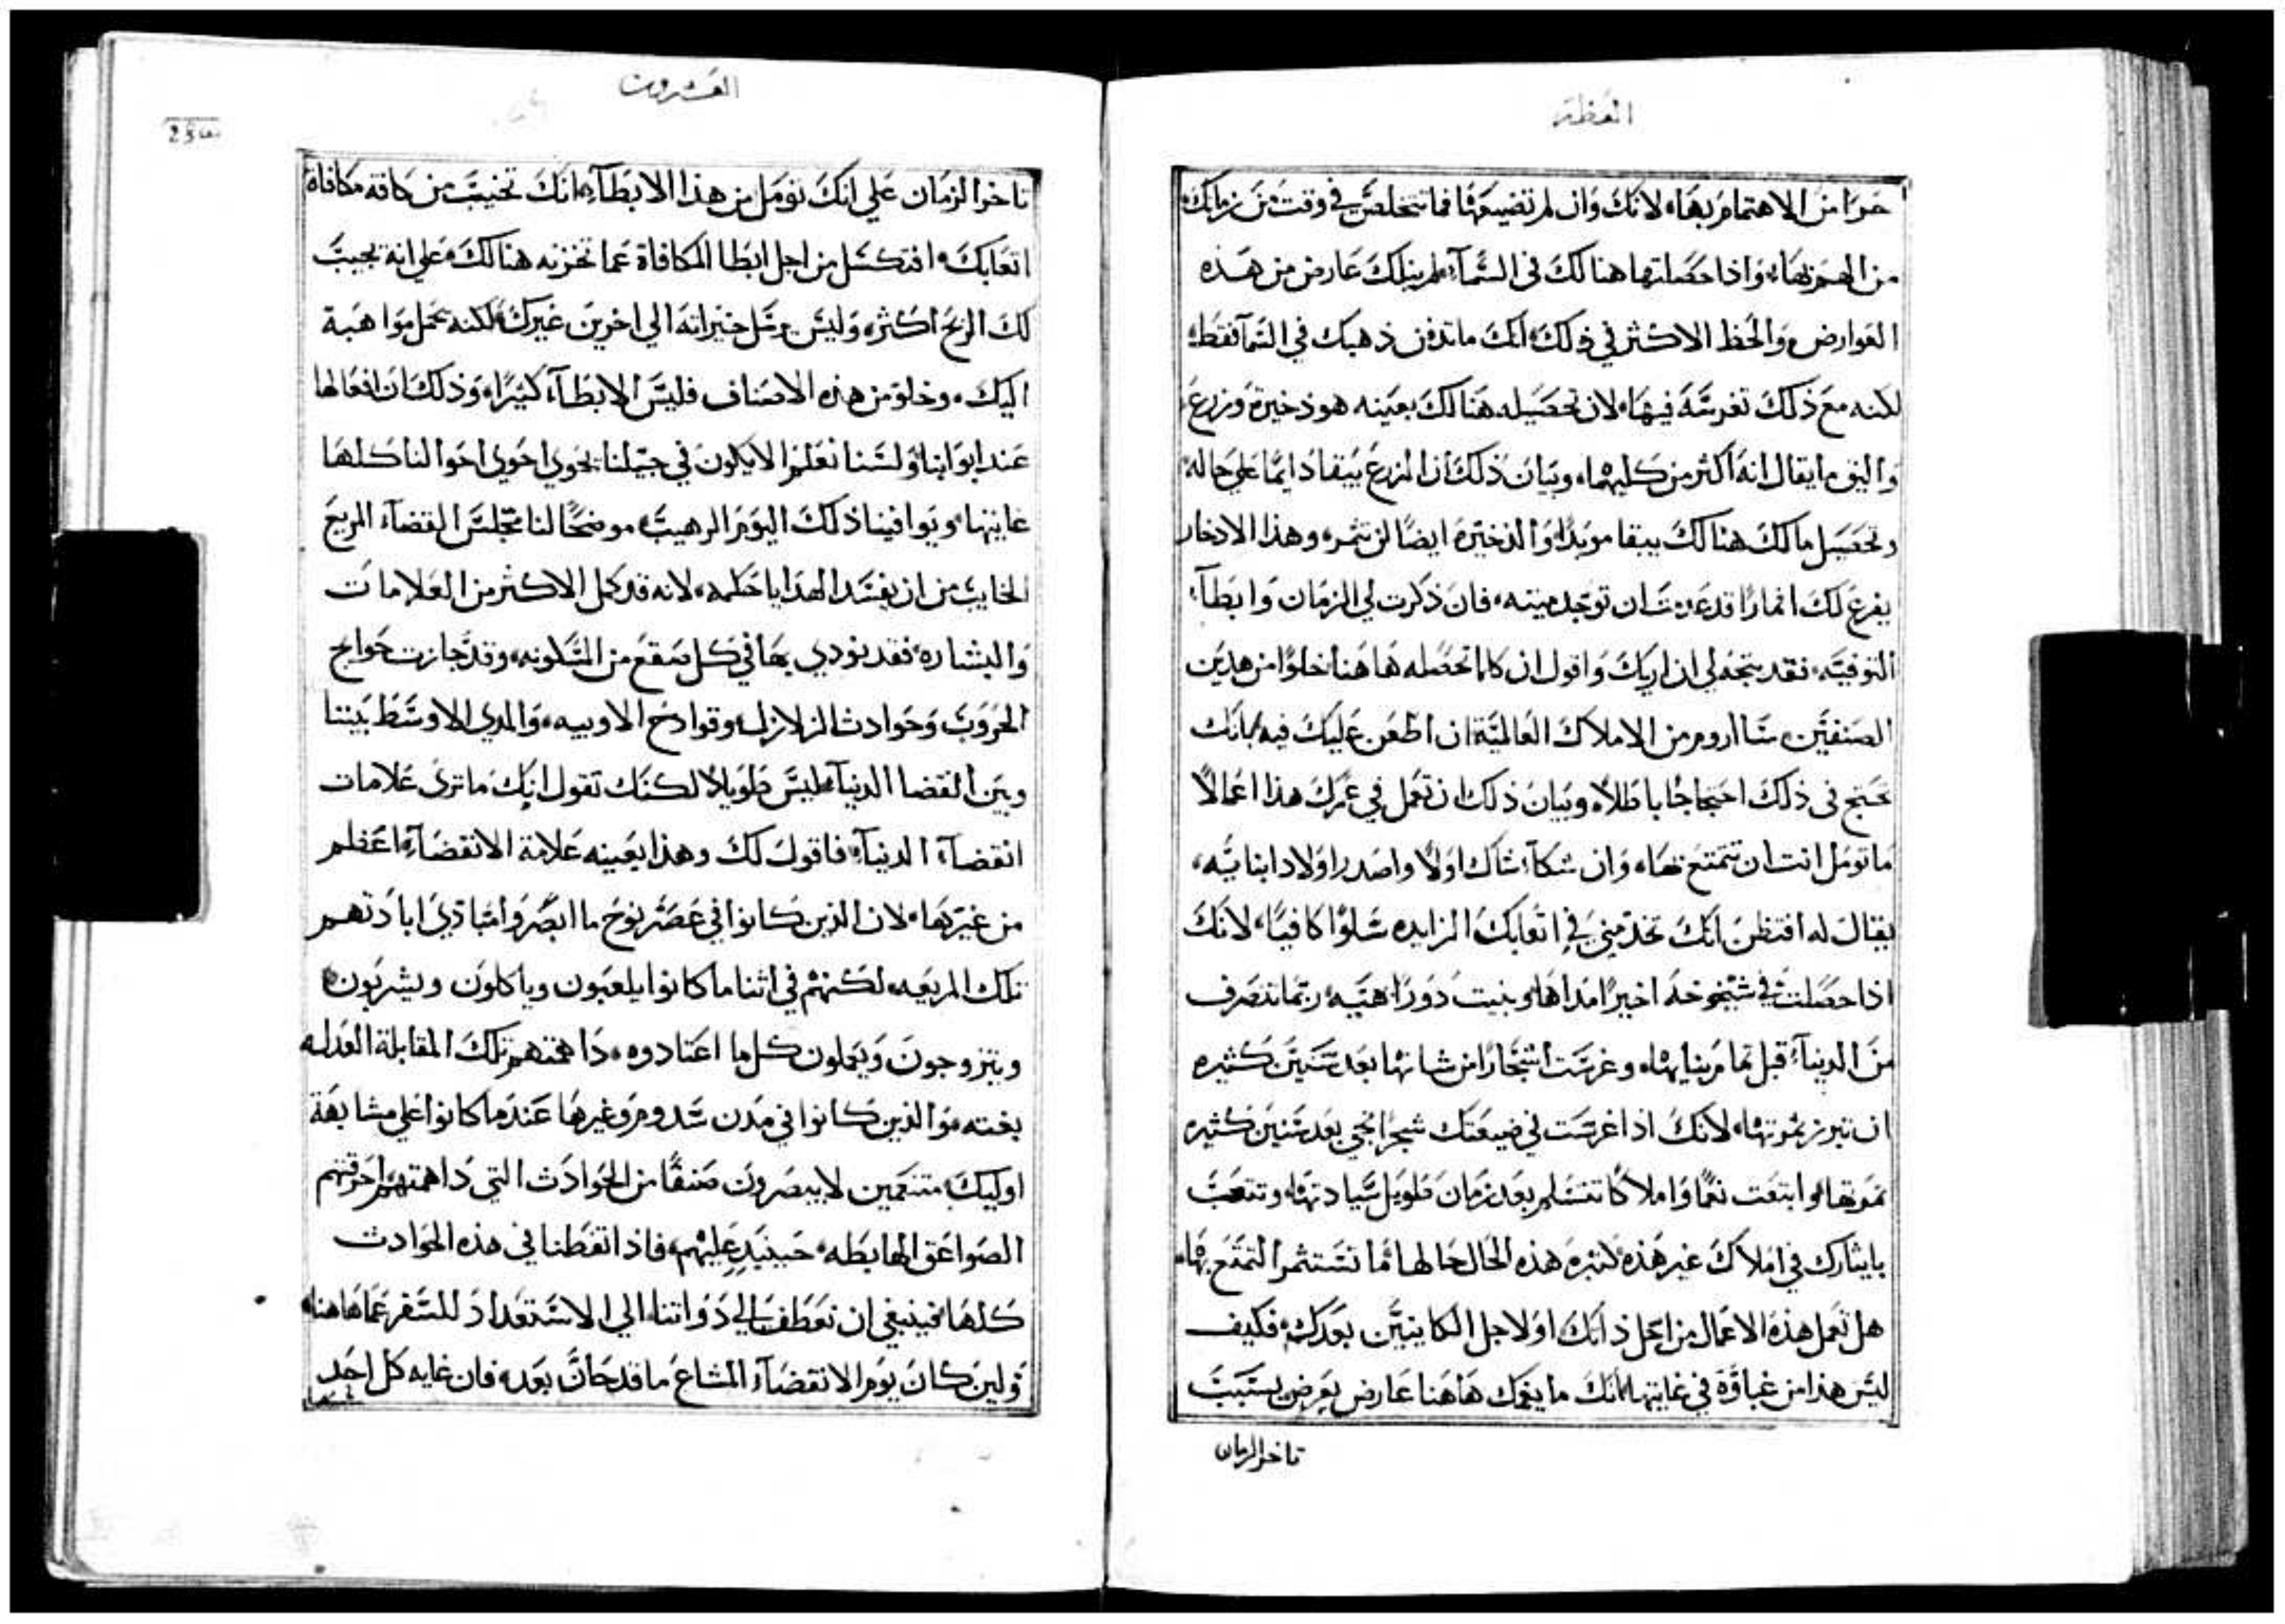 العظة
حرا من الاهتمام بها، لانك وان لم تضيعها فما تتخلص في وقت من زمانك
من الهم بها، واذا حصلتها هنالك في السمآء لم ينلك عارض من هذه
العوارض، والحظ الاكثر في ذلك، انك ما تدفن ذهبك في السمآ فقط،
لكنه مع ذلك تغرسه فيها، لان تحصيله هنالك بعينه هو ذخيرة وزرع
واليق ما يقال انه اكثر من كليهما، وبيان ذلك ان الزرع يبقا دايمًا علي حاله
وتحصيل مالك هنالك يبقا موبدًا، والذخيرة ايضًا لن تثمر، وهذا الادخار
يفرع لك اثمارًا قد عدمت ان توجد ميته، فان ذكرت لي الزمان وابطآء
التوفيه، فقد يتجه لي ان اريك واقول ان كلما تحصله هاهنا خلوًا من هذين
الصنفين، سااروم من الاملاك العالمية ان اطعن عليك فيه بانك
تحتج في ذلك احتجاجًا باطلاً، وبيان ذلك ان تعمل في عمرك هذا اعمالاً
ما تومل انت ان تتمتع بها، وان شكآ شاك اولاً واصدر اولاد ابنايه،
يقال له افتظن انك تخدمني في اتعابك الزايده سلوًا كافيًا، لانك
اذا حصلت في شيخوخه اخيرًا مداها، وبنيت دورًا هيبه، ربما تنصرف
من الدنيآء قبل تمام بنايها، وغرست اشجارًا من شانها بعد سنين كثيره
ان تبرز ثمرتها، لانك اذا غرست في ضيعتك شجرًا تجي بعد سنين كثيره
ثمرتها، وابتعت نعمًا واملاكًا تتسلم بعد زمان طويل سيادتها، وتتعب
بايثارك في املاك غير هذه كثيرة هذه الحال حالها ما تستثمر التمتع بها،
هل تعمل هذه الاعمال من اجل ذاتك او لاجل الكاينين بعدك، فكيف
ليس هذا من غباوة في غايتها انك ما يغمك هاهنا عارض يعرض بسبب
تاخر الزمان
العشرون
تاخر الزمان علي انك تومل من هذا الابطآء انك تخيب من كافة مكافاة
اتعابك، افتكسل من اجل ابطا المكافاة عما تخزنه هنالك، علي انه يجيب
لك الربح اكثر، وليس يرسل خيراته الي اخرين غيرك، لكنه يحمل مواهبة
اليك، وخلو من هذه الاصناف فليس الابطآء كثيرًا، وذلك ان افعالها
عند ابوابنا، ولسنا نعلم الا يكون في جيلنا يحوي احوي احوالنا كلها
غايتها، ويوافينا ذلك اليوم الرهيب، موضحًا لنا مجلس القضآء المريع
الخايب من ان يفسد الهدايا حكمه، لانه قد كمل الاكثر من العلامات
والبشاره، فقد نودي بها في كل صقع من المسكونه، وقد جازت حوايج
الحروب وحوادث الزلازل، وقوادح الاوبيه، والمدي الاوسط بيننا
وبين انقضا الدنيآ، فليس طويلاً لكنك تقول انك ما تري علامات
انقضآء الدنيآ، فاقول لك وهذا بعينه علامة الانقضآء اعظم
من غيرها، لان الذين كانوا في عصر نوح ما ابصروا مبادي ابادتهم
تلك المريعه، لكنهم في اثنا ما كانوا يلعبون وياكلون ويشربون
ويتزوجون ويعملون كل ما اعتادوه، داهمتهم تلك المقابلة العدله
بغته، والذين كانوا في مدن سدوم وغيرها عندما كانوا علي مشابهة
اوليك، متنعمين لا يبصرون صنفًا من الحوادث التي داهمتهم، احرقتهم
الصواعق الهابطه، حينيذ عليهم، فاذ اتعظنا في هذه الحوادث
كلها، فينبغي ان نعطف الي ذواتنا، الي الاستعداد للسفر عما هاهنا،
ولين كان يوم الانقضآء المشاع ما قد حان بعد، فان غايه كل احد